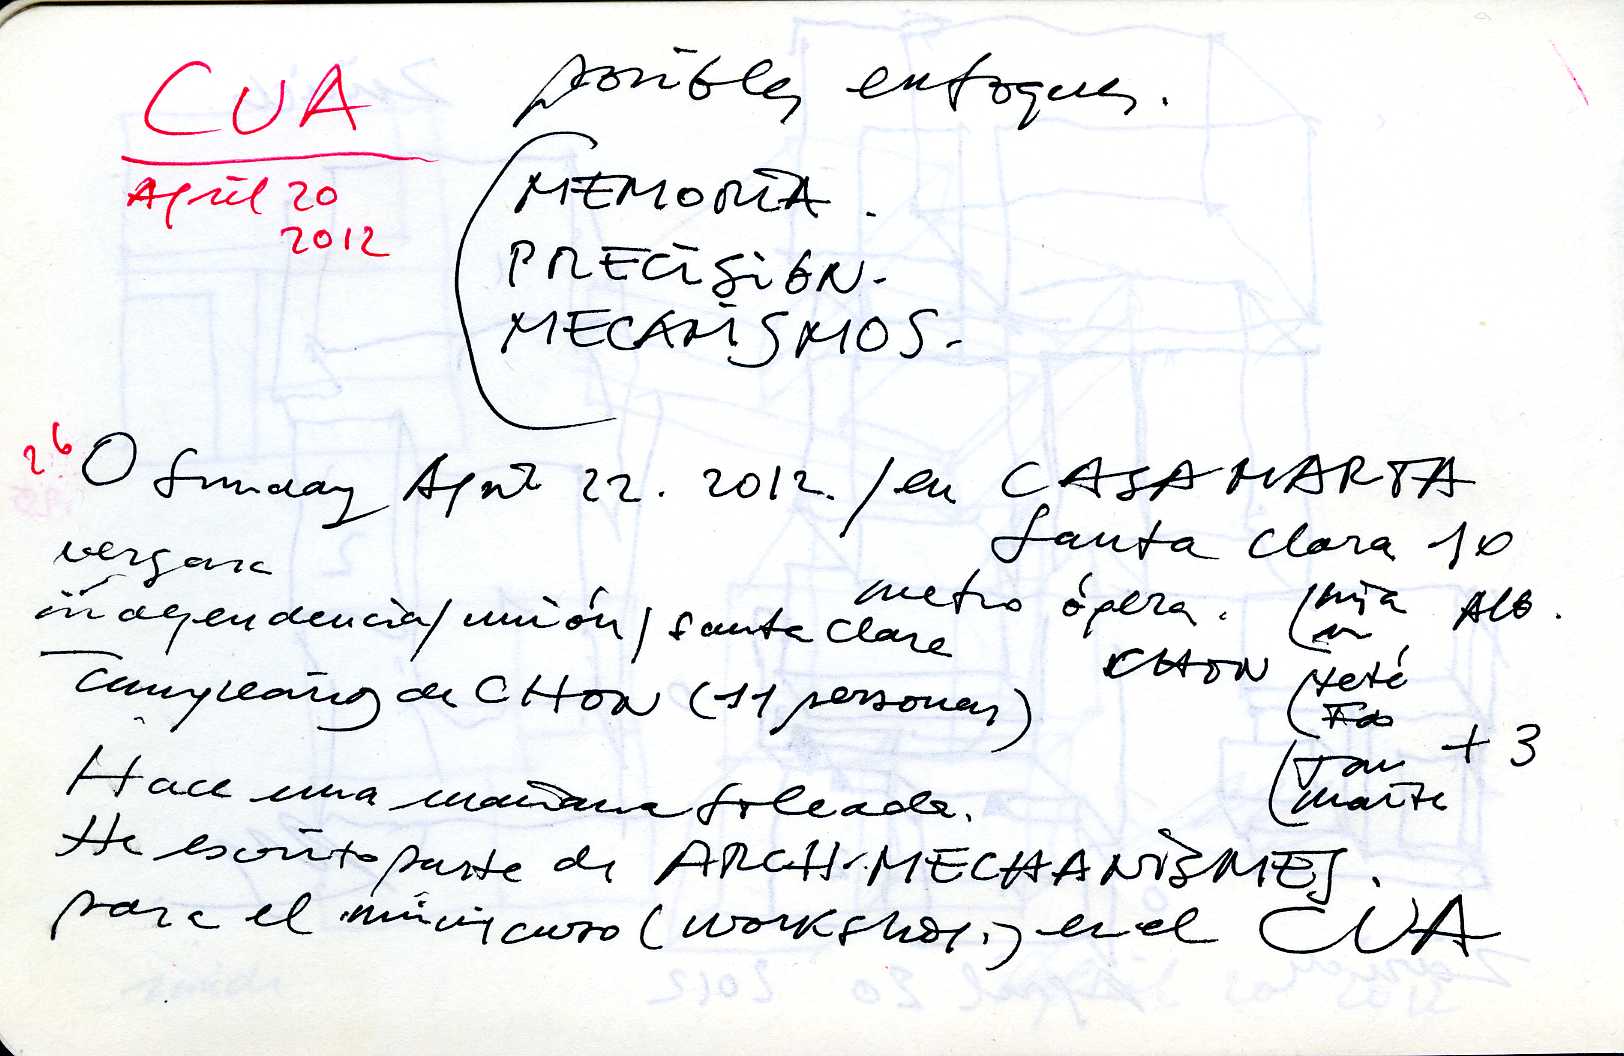 CUA
April 20
2012
posibles enfoques.
MEMORIA.
PRECISIÓN.
MECANISMOS.
26
O Sunday April 22. 2012. / en CASA MARTA
Santa Clara 10
vergara
independencia / unión / santa clara
metro ópera.
Cumpleaños de CHON (11 personas)
CHON
mja Alb.
teté
+ 3
marta
Hace una mañana soleada.
He escrito parte de ARCH-MECHANISMES.
para el minicurso (workshop.) en el CUA
April 20 2012